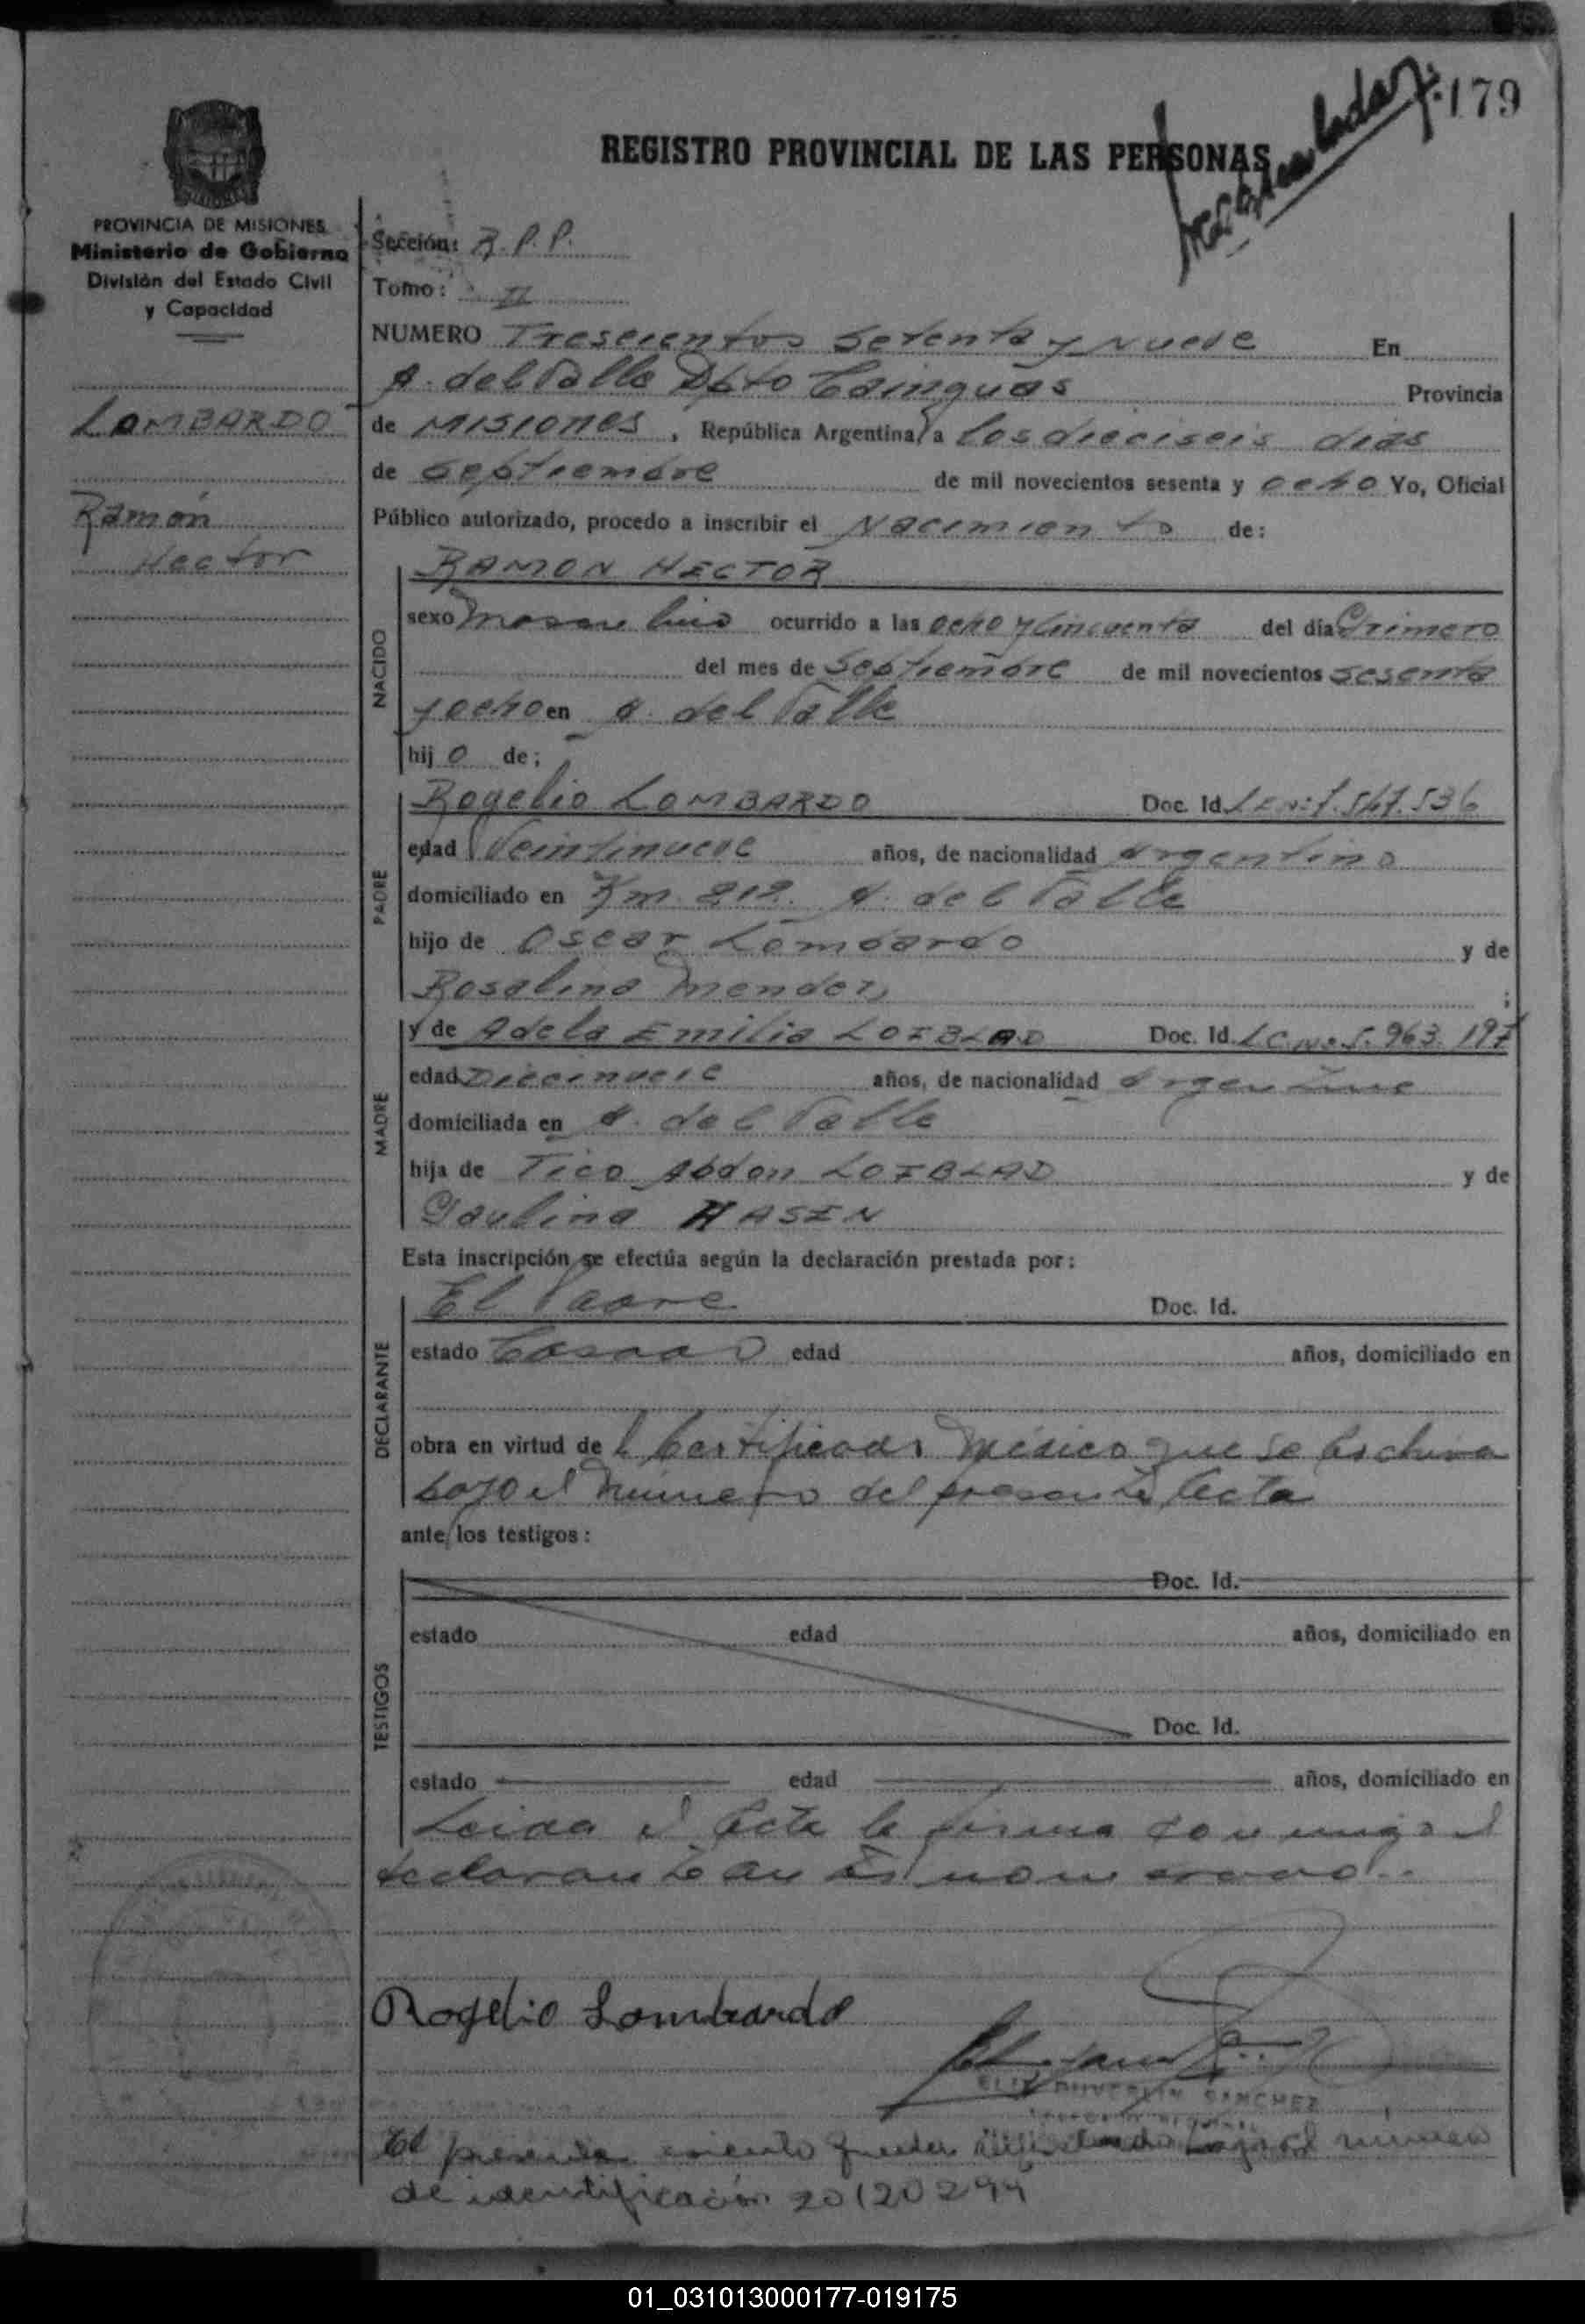 179
REGISTRO PROVINCIAL DE LAS PERSONAS
PROVINCIA DE MISIONES
Ministerio de Gobierno
División del Estado Civil
y Capacidad
LOMBARDO
Ramón
Hector
Sección: R.P.P.
Tomo: II
NUMERO Trescientos Setenta y Nueve En
A. del Valle Dpto Cainguas Provincia
de MISIONES, República Argentina, a los dieciseis dias
de Septiembre de mil novecientos sesenta y ocho Yo, Oficial
Público autorizado, procedo a inscribir el Nacimiento de:
NACIDO
RAMON HECTOR
sexo Masculino ocurrido a las ocho y cincuenta del día Primero
del mes de Septiembre de mil novecientos sesenta
y ocho en A. del Valle
hijo de;
PADRE
Rogelio LOMBARDO Doc. Id. L.E.Nº 7.547.536
edad Veintinueve años, de nacionalidad Argentino
domiciliado en Km. 212. A. del Valle
hijo de Oscar Lombardo y de
Rosalina Mendez ;
MADRE
y de Adela Emilia LOIBLAD Doc. Id. L.C.Nº 5.963.197
edad Diecinueve años, de nacionalidad Argentina
domiciliada en A. del Valle
hija de Tico Abdon LOIBLAD y de
Paulina HASEN
Esta inscripción se efectúa según la declaración prestada por:
DECLARANTE
El Padre Doc. Id.
estado Casado edad años, domiciliado en
obra en virtud del Certificado Médico que se archiva
bajo el Número del presente Acta
ante los testigos:
TESTIGOS
Doc. Id.
estado edad años, domiciliado en
Doc. Id.
estado edad años, domiciliado en
Leida el Acta la firma conmigo el
declarante antes nombrado.-
Rogelio Lombardo
SANCHEZ
El presente asiento queda bajo el número
de identificación 20120294
01_031013000177-019175